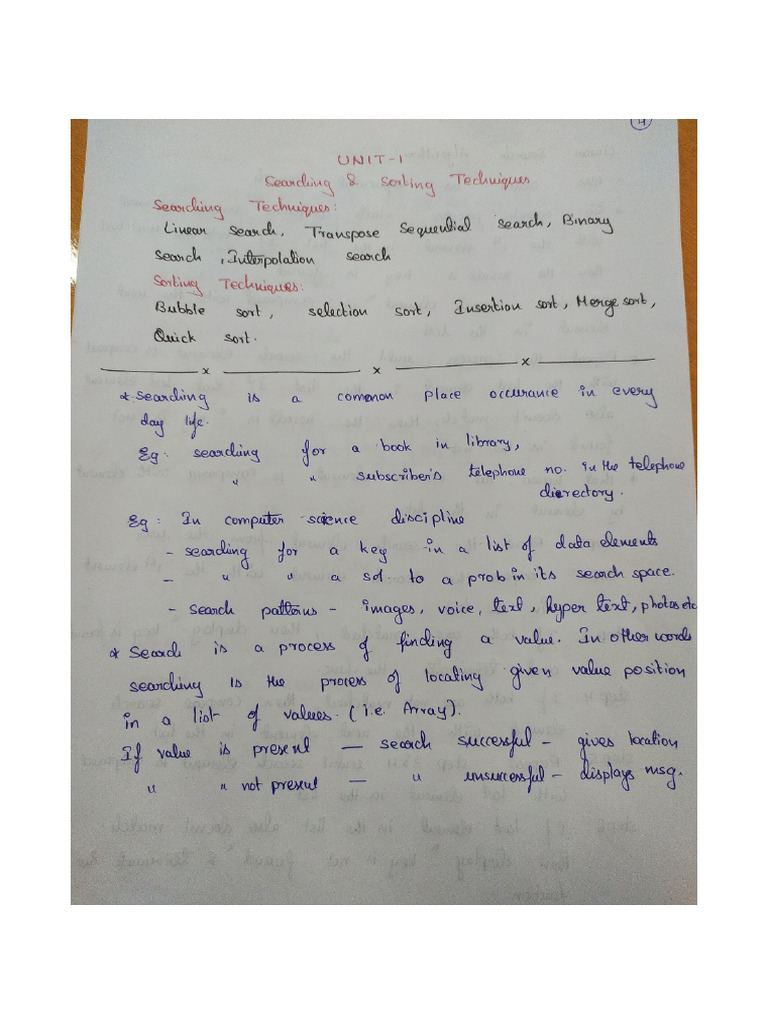 4
UNIT-1
Searching & Sorting Techniques
Searching Techniques:
Linear search, Transpose Sequential search, Binary
search, Interpolation search
Sorting Techniques:
Bubble sort, selection sort, Insertion sort, Merge sort,
Quick sort.
x x x
* Searching is a common place occurance in every
day life.
Eg: searching for a book in library,
" " subscriber's telephone no. in the telephone
directory.
Eg: In computer science discipline
- searching for a key in a list of data elements
- " " a sol. to a prob in its search space.
- Search patterns - images, voice, text, hyper text, photos etc
* Search is a process of finding a value. In other words
searching is the process of locating given value position
in a list of values. (i.e. Array).
If value is present — search successful - gives location
" " not present — " unsuccessful - displays msg.